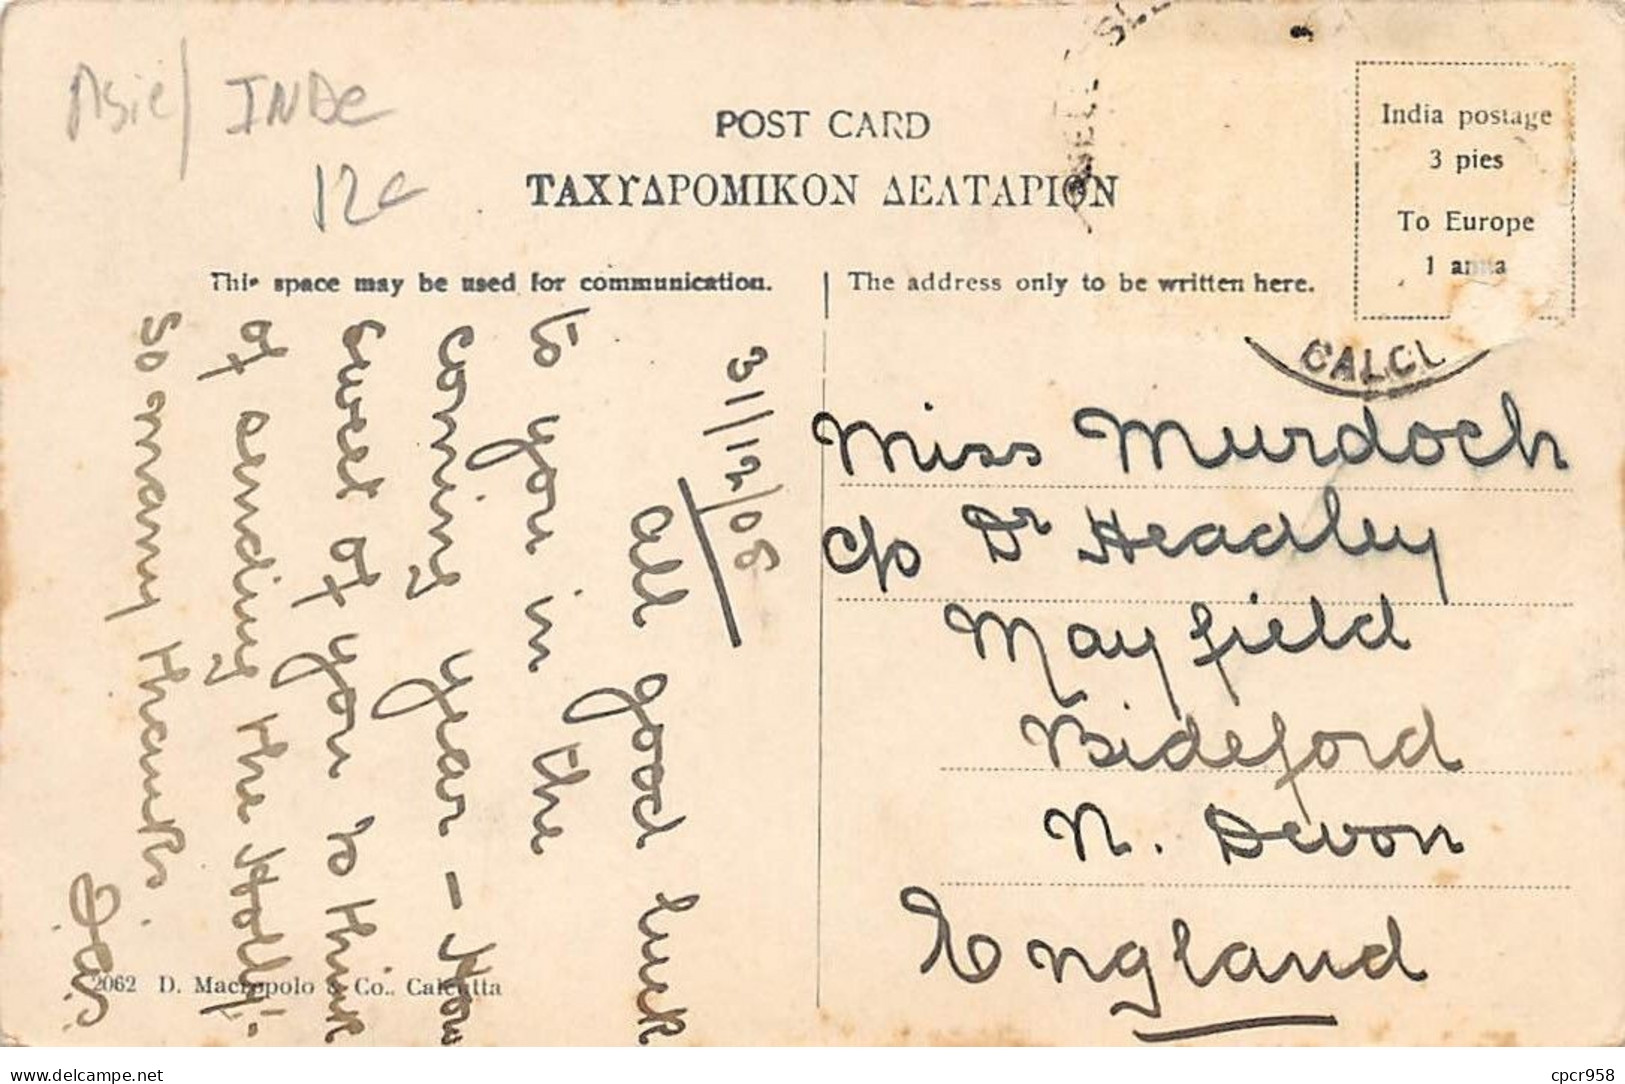 Asie/ INDE
12€
POST CARD
ΤΑΧΥΔΡΟΜΙΚΟΝ ΔΕΛΤΑΡΙΟΝ
India postage
3 pies
To Europe
1 anna
This space may be used for communication.
The address only to be written here.
CALCU
31/12/08
All good luck
to you in the
coming year - How
sweet of you to think
of sending the Holly.
So many thanks.
Miss Murdoch
c/o Dr Headley
Mayfield
Bideford
N. Devon
England
2062 D. Macropolo & Co., Calcutta
delcampe.net
cpcr958